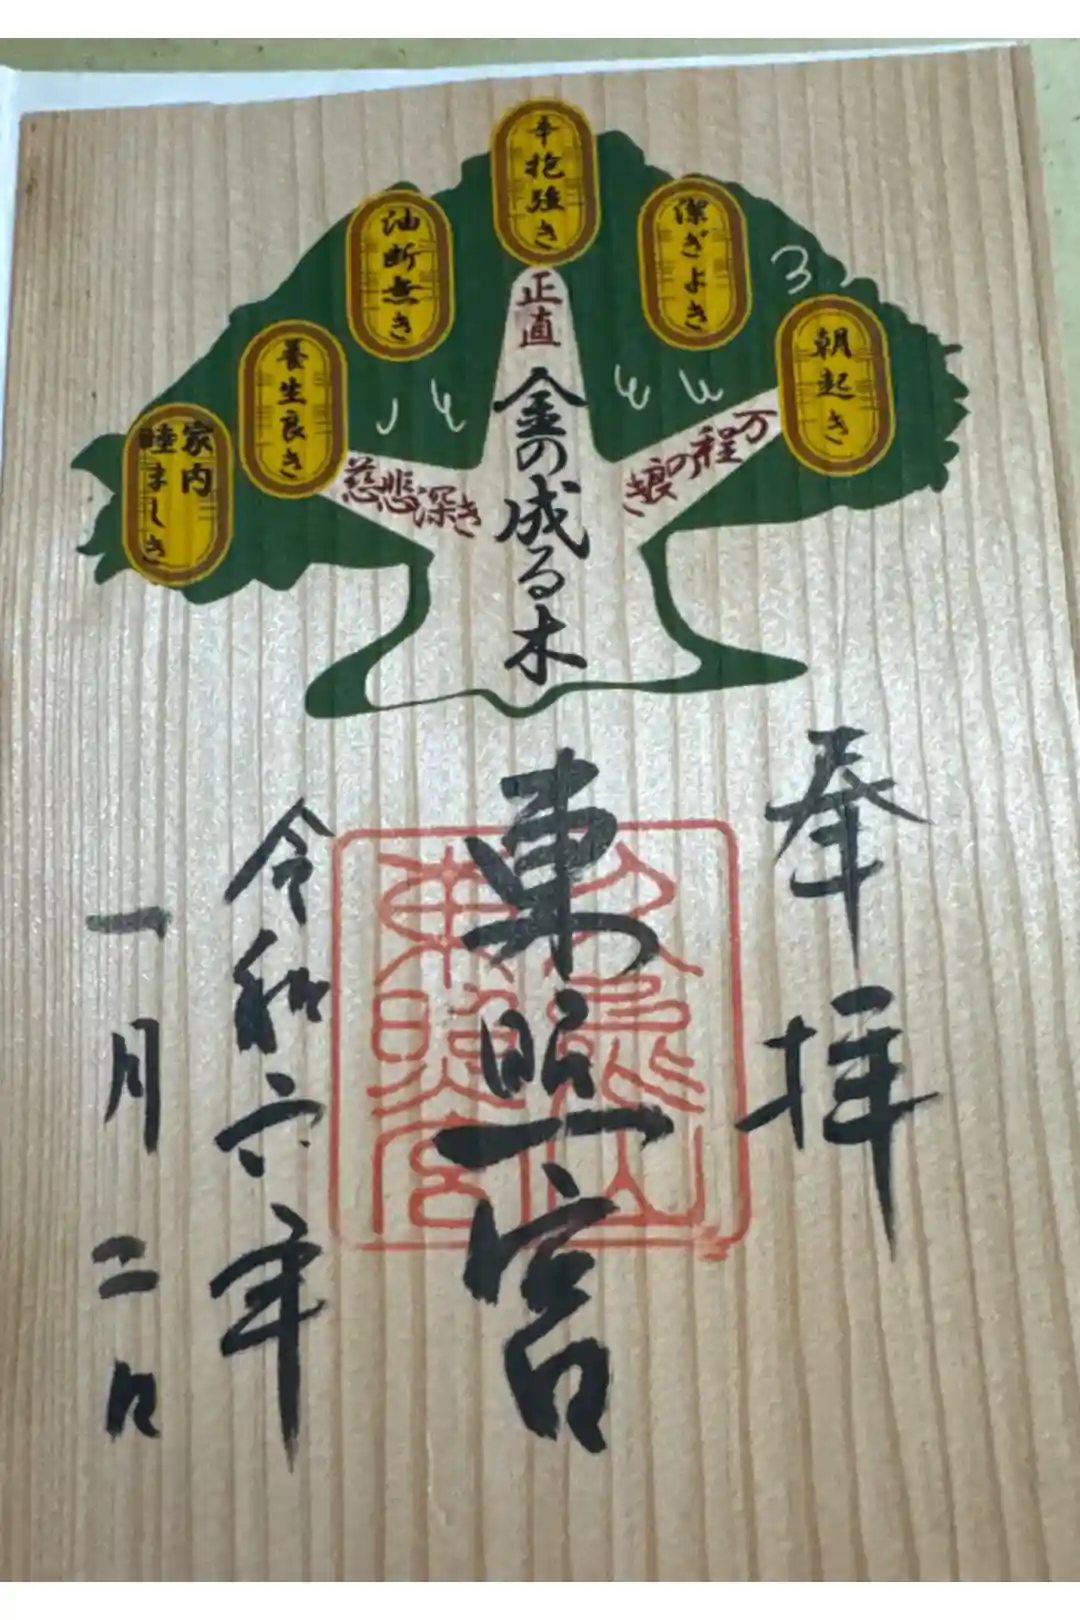 朝起き
潔ぎよき
辛抱強き
油断無き
養生良き
家内
睦ましき
万程の
正直
慈悲深き
金の成る木
奉拝
東照宮
久能山
東照宮
令和六年
一月二日